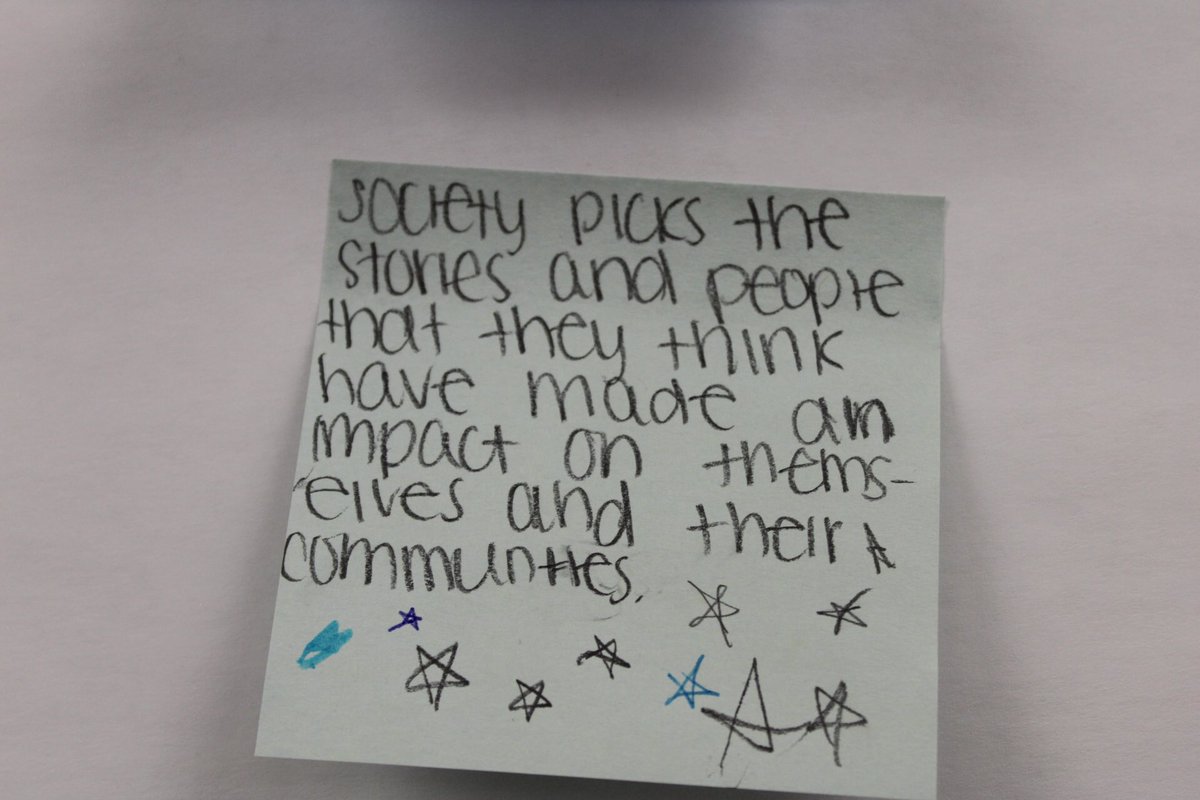 society picks the
stories and people
that they think
have made an
impact on thems-
elves and their
communties.